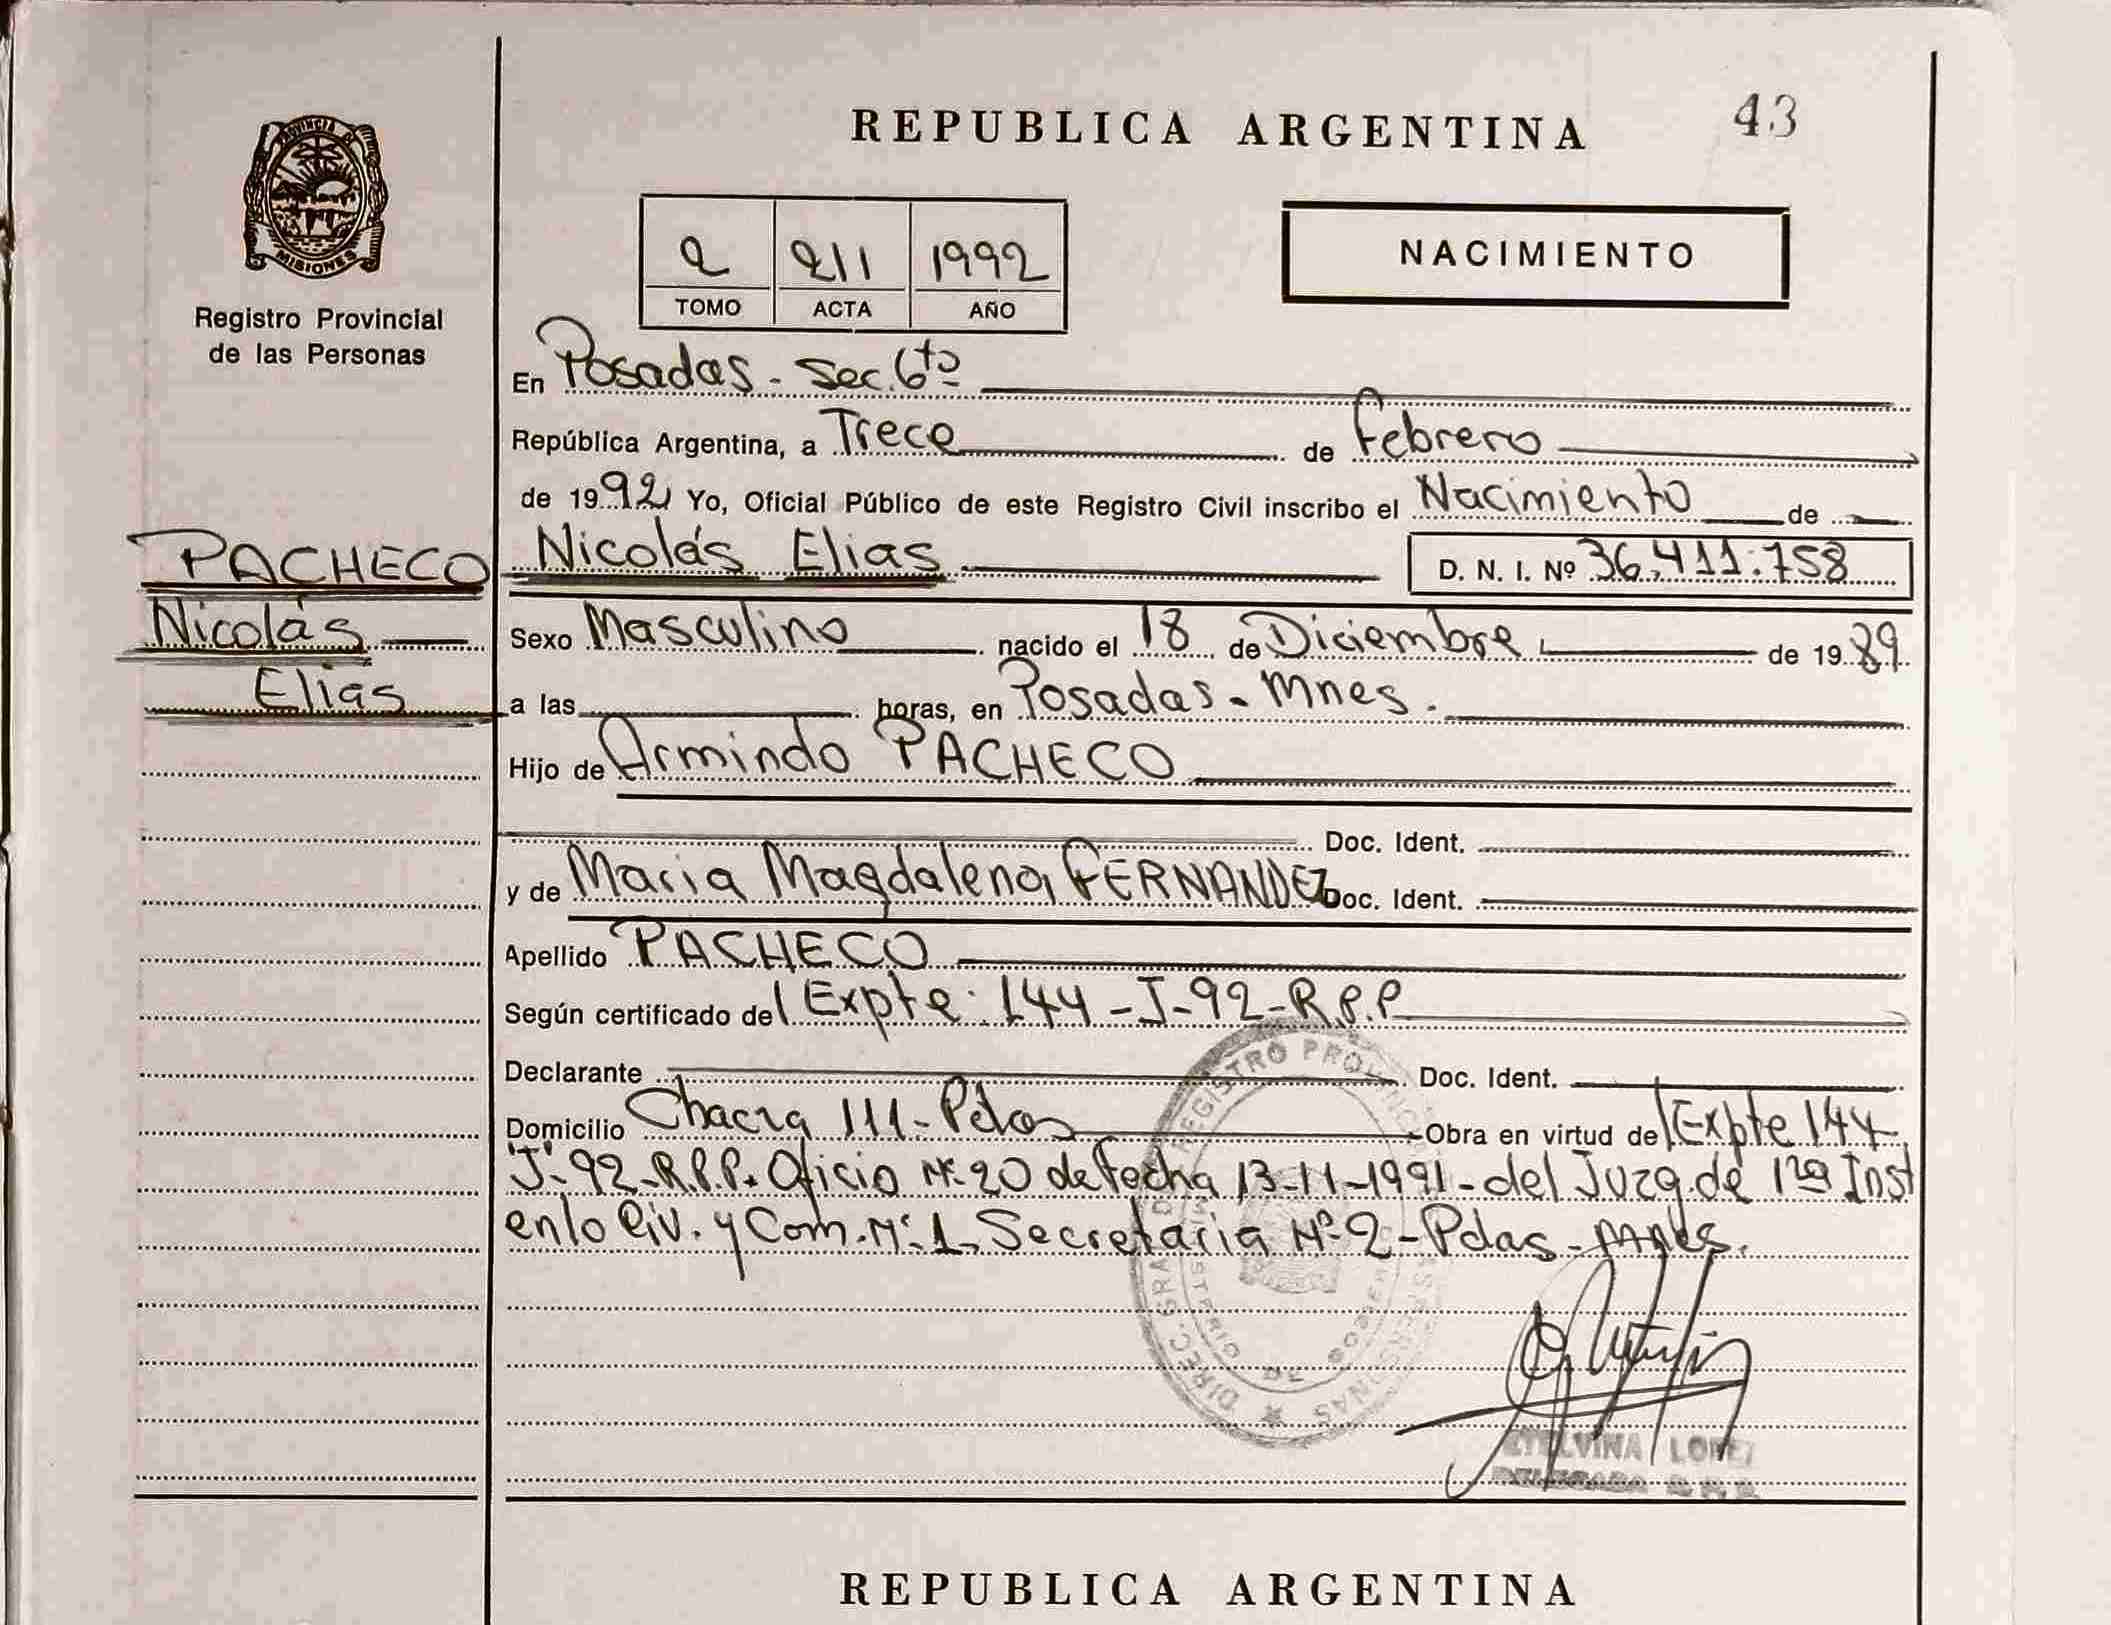 REPUBLICA ARGENTINA
43
PROVINCIA DE
MISIONES
Registro Provincial
de las Personas
2 211 1992
TOMO ACTA AÑO
NACIMIENTO
En Posadas - Sec. 6ta
República Argentina, a Trece de Febrero
de 1992 Yo, Oficial Público de este Registro Civil inscribo el Nacimiento de
PACHECO
Nicolás
Elias
Nicolás Elias D. N. I. Nº 36.411.758
Sexo Masculino nacido el 18 de Diciembre de 1989
a las horas, en Posadas - Mnes.
Hijo de Armindo PACHECO
Doc. Ident.
y de Maria Magdalena FERNANDEZ Doc. Ident.
Apellido PACHECO
Según certificado del Expte: 144-J-92-R.P.P
Declarante Doc. Ident.
Domicilio Chacra 111-Pdas Obra en virtud del Expte 144
"J"-92-R.P.P. Oficio Nº 20 de Fecha 13-11-1991-del Juzg. de 1ra Inst
en lo Civ. y Com. Nº 1, Secretaria Nº 2-Pdas-Mnes.
DIREC. GRAL. DE REGISTRO PROVINCIAL DE LAS PERSONAS
MINISTERIO DE GOBIERNO
ETELVINA LOPEZ
REPUBLICA ARGENTINA